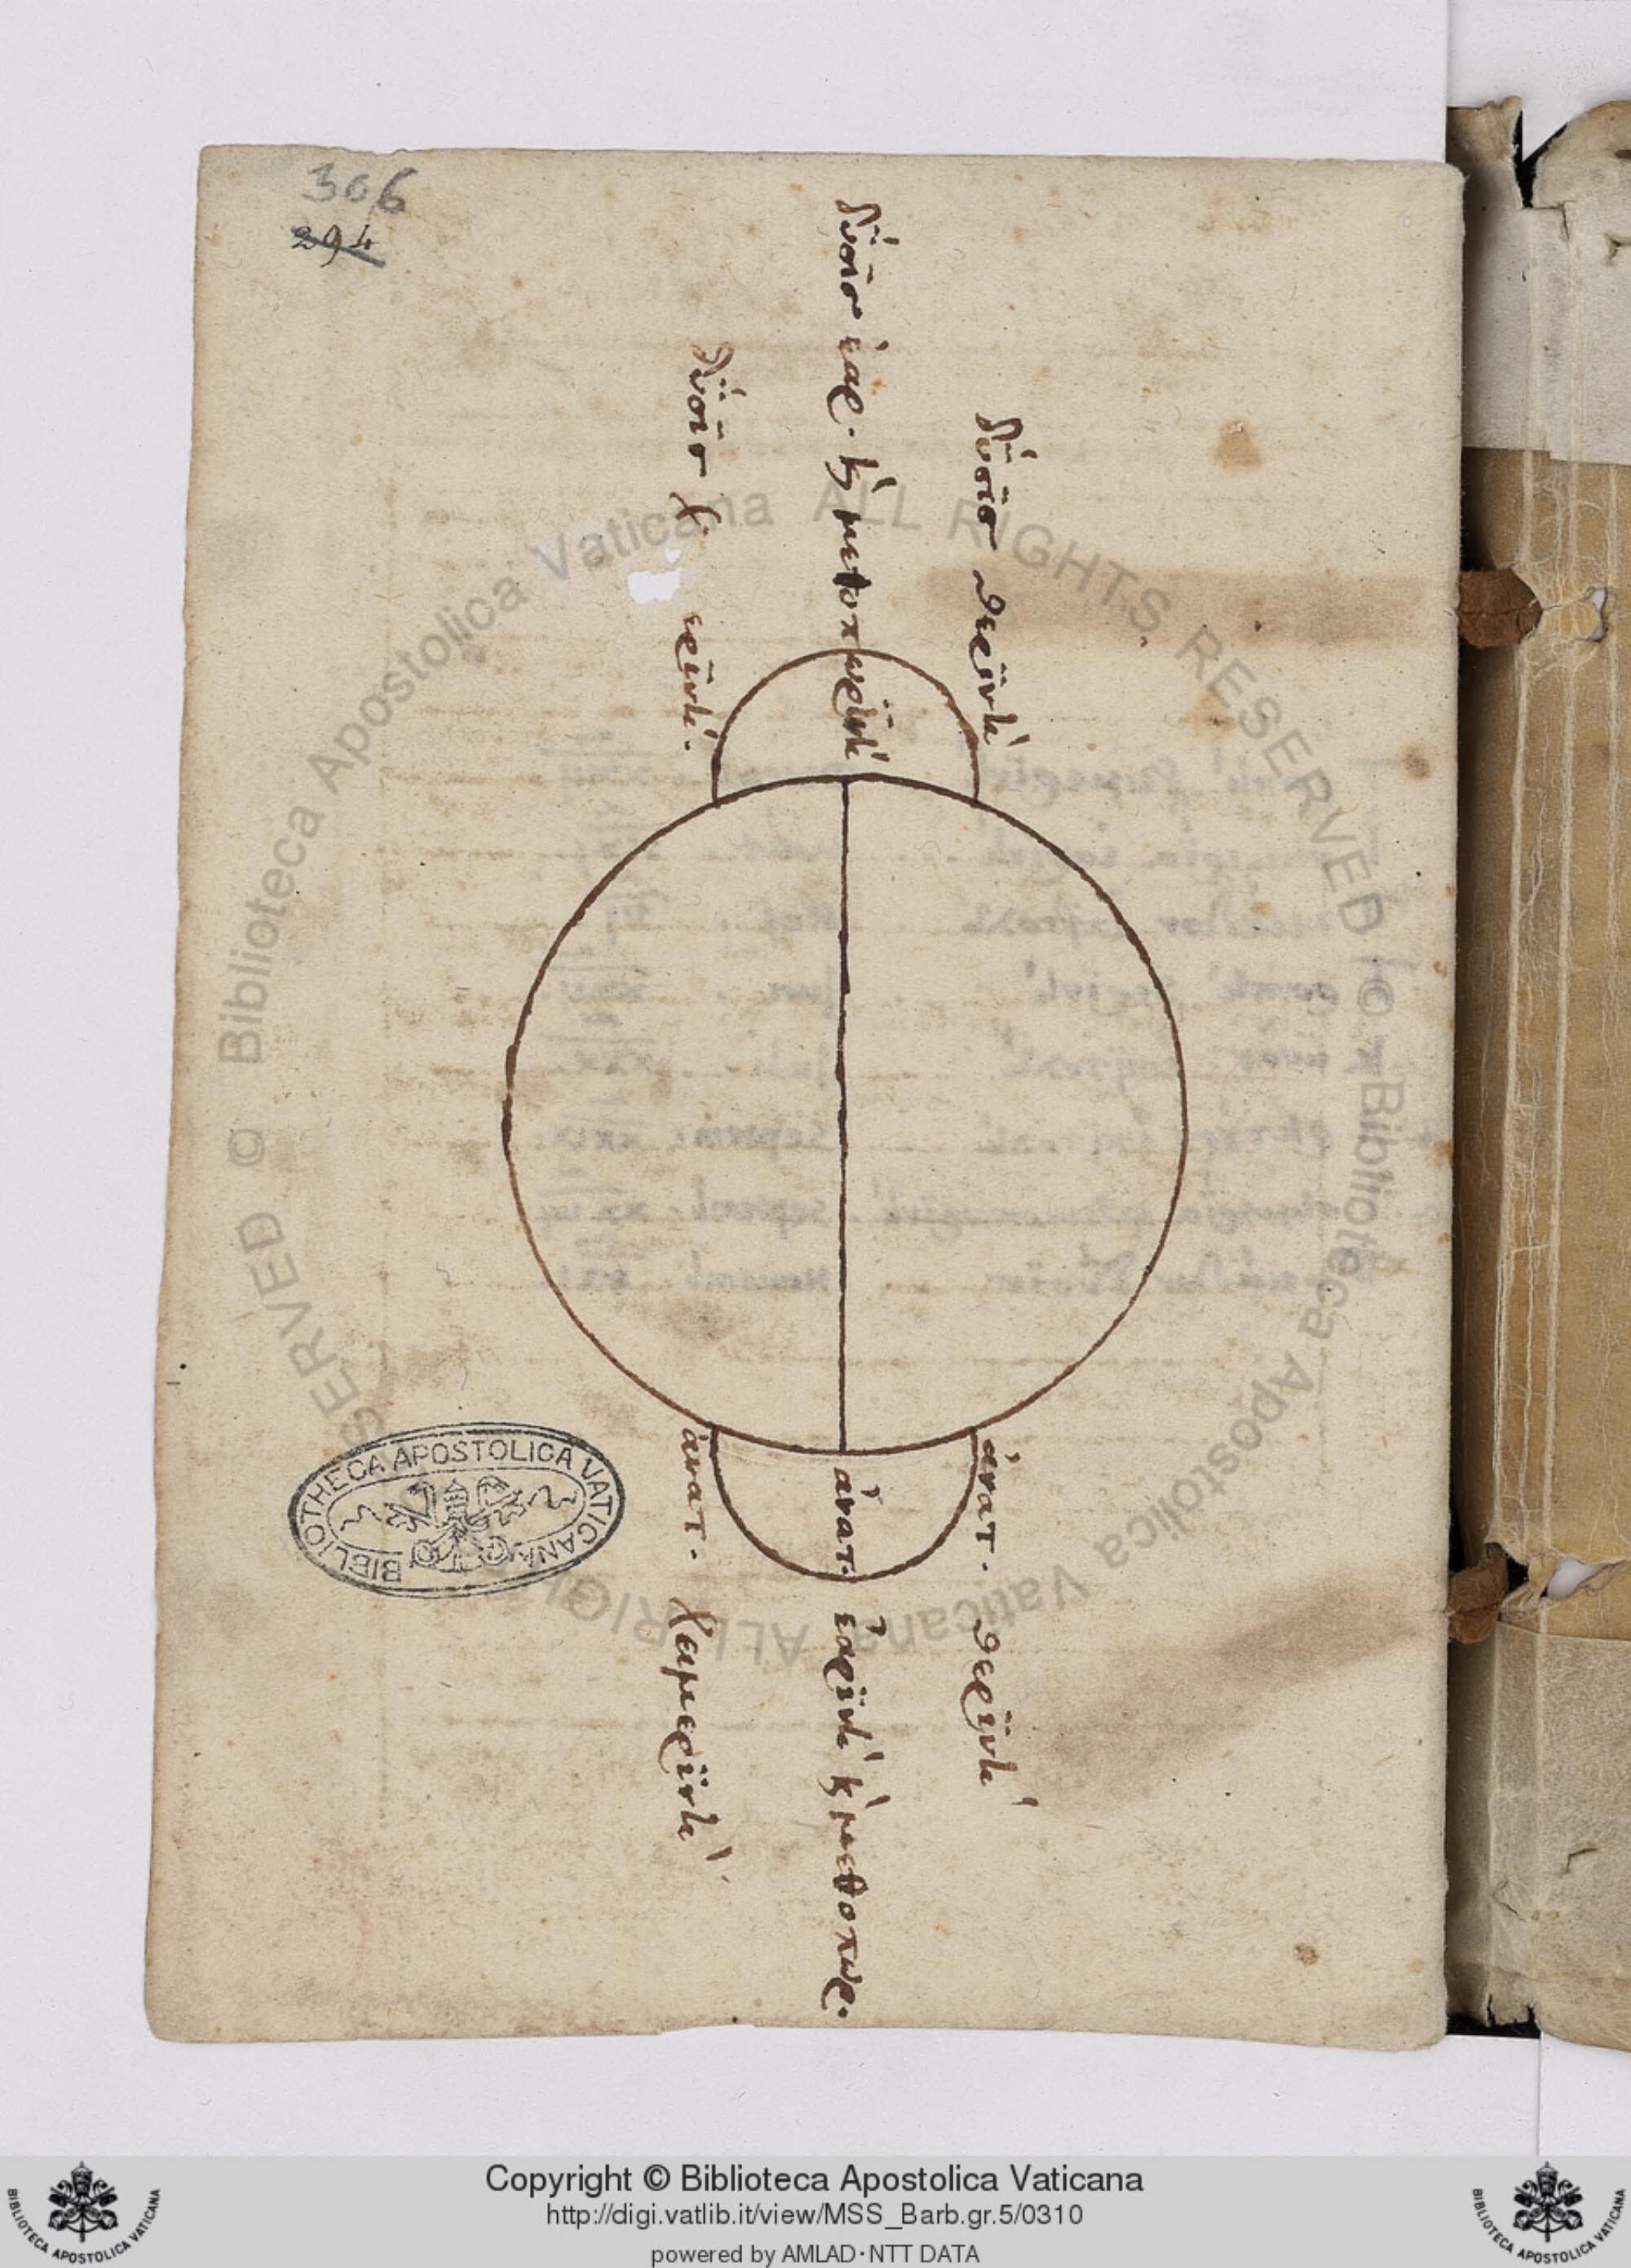 306
294
δύσις θερινὴ
δύσις ἐαρ. καὶ μεθοπωρινὴ
δύσις χ ερινή.
ἀνατ. θερινὴ
ἀνατ. ἐαρινὴ καὶ μεθοπωρ.
ἀνατ. χειμερινὴ
BIBLIOTHECA APOSTOLICA VATICANA
© Biblioteca Apostolica Vaticana ALL RIGHTS RESERVED
© Biblioteca Apostolica Vaticana ALL RIGHTS RESERVED
Copyright © Biblioteca Apostolica Vaticana
http://digi.vatlib.it/view/MSS_Barb.gr.5/0310
powered by AMLAD·NTT DATA
BIBLIOTECA APOSTOLICA VATICANA
BIBLIOTECA APOSTOLICA VATICANA